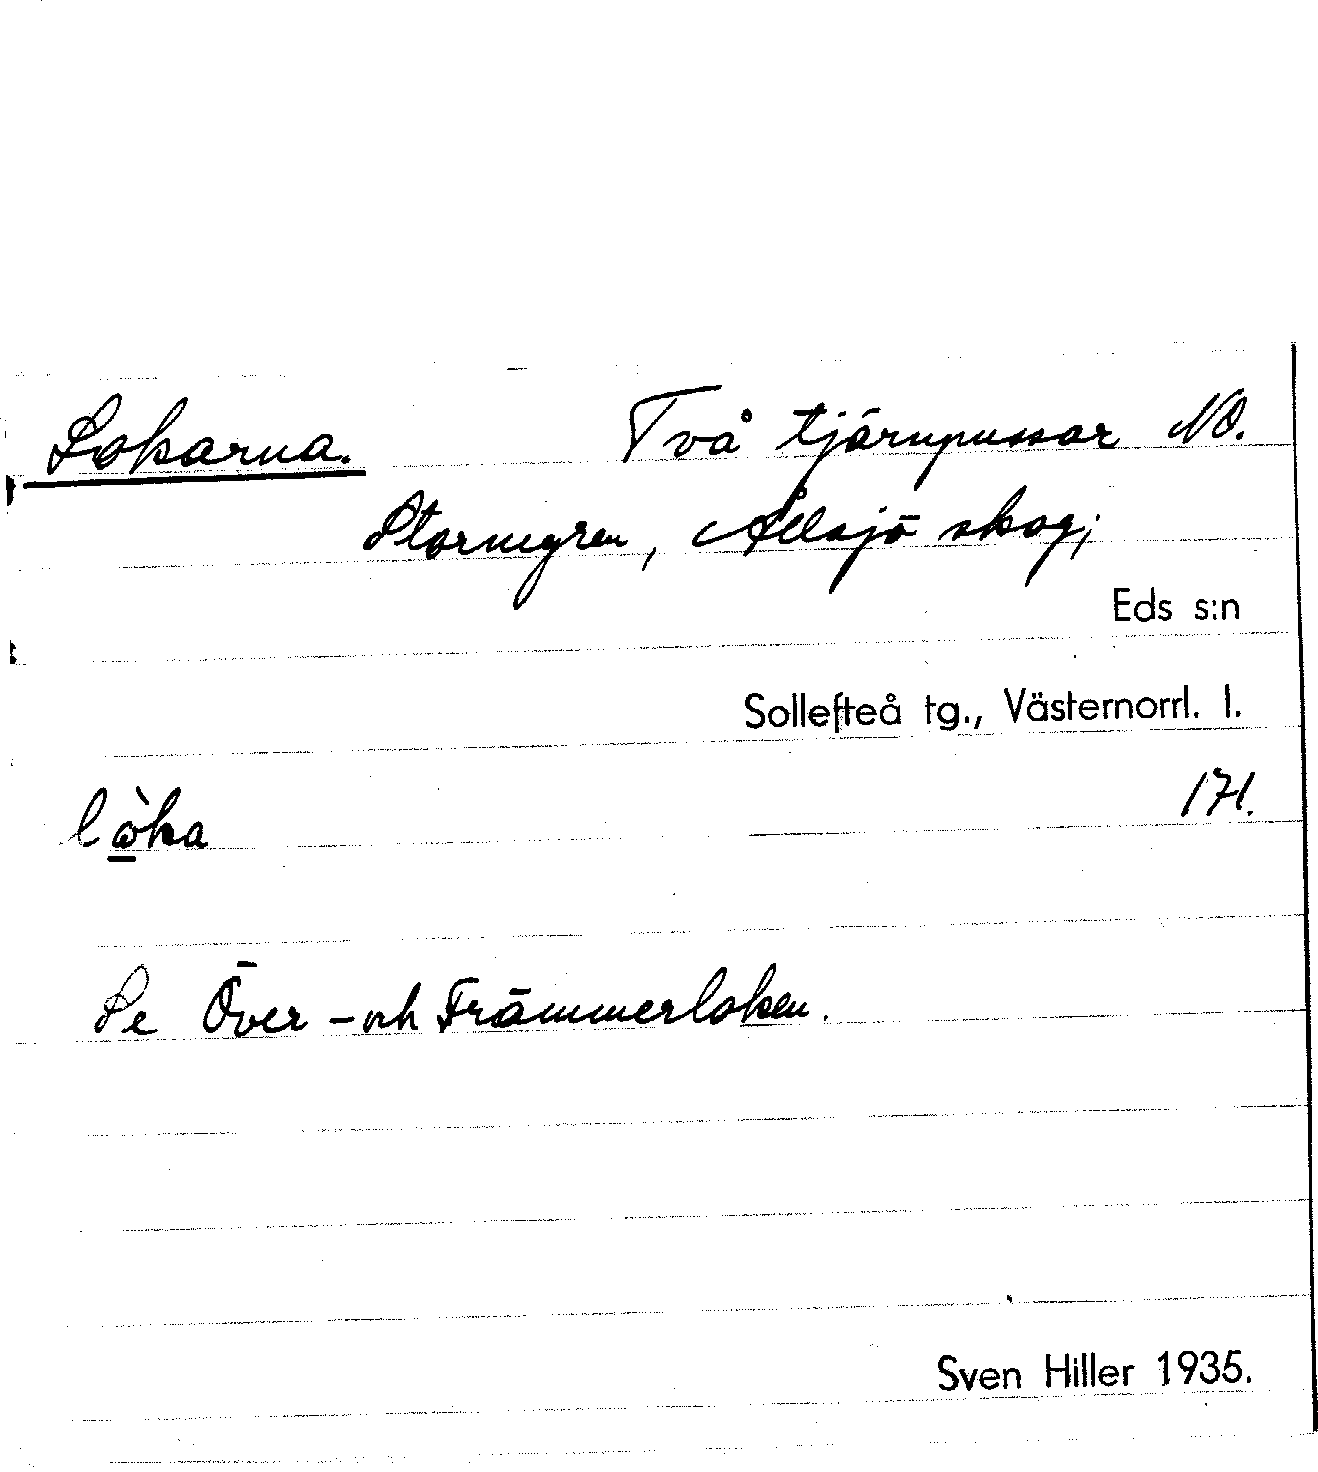 Lokarna. Två tjärnpussar NO.
Stormyren, Ållsjö skog;
Eds s:n
Sollefteå tg., Västernorrl. l.
lò̲ka 171.
Se Över- och Främmerloken.
Sven Hiller 1935.